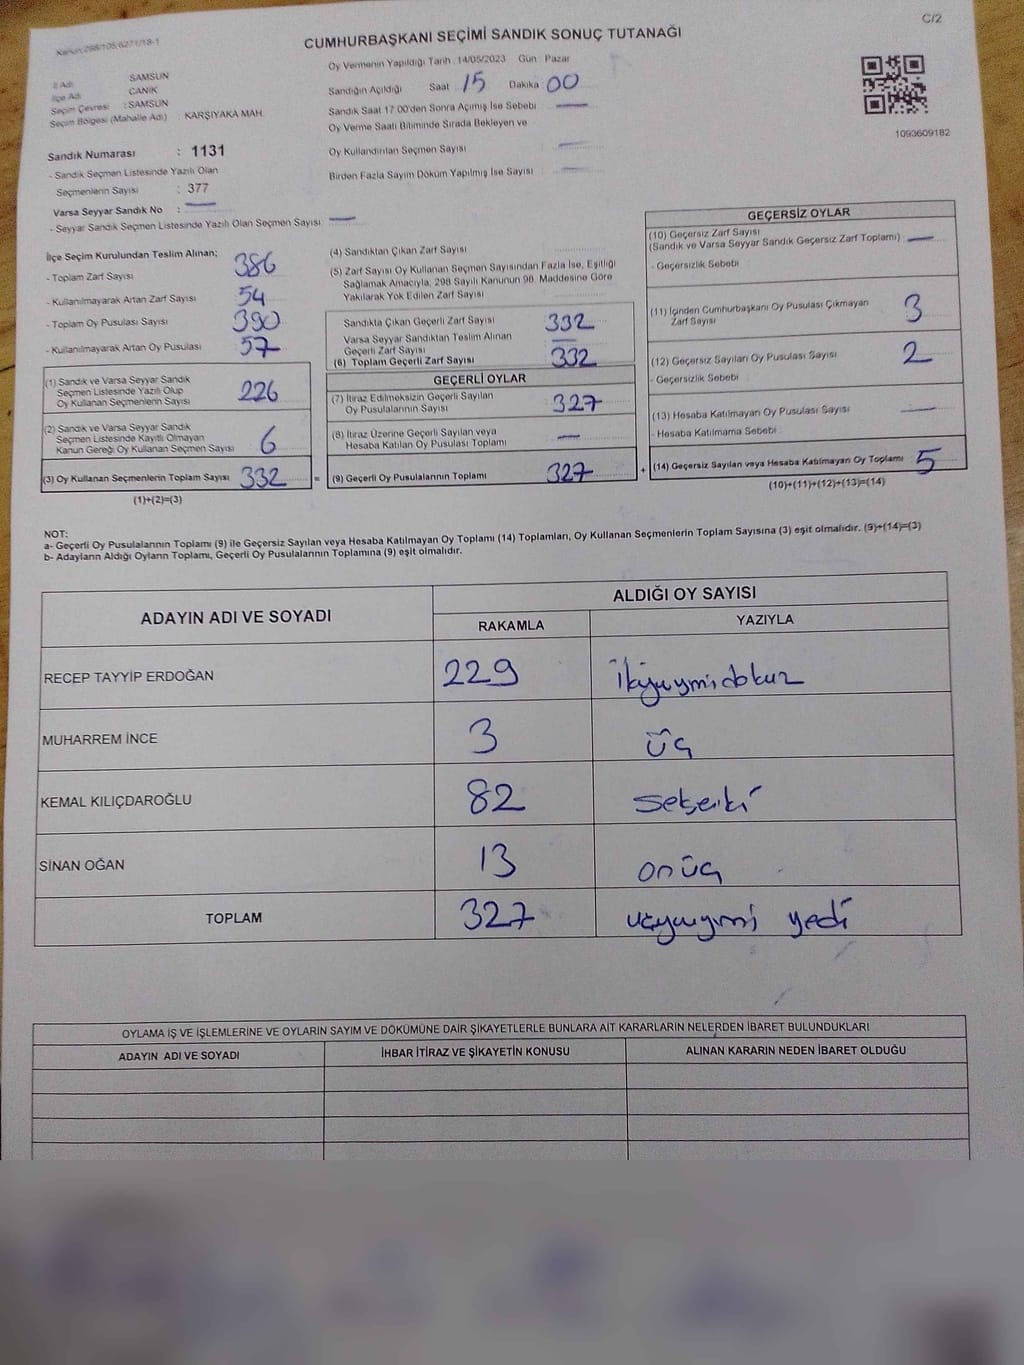 C/2
Kanun:298/105,6271/18-1
CUMHURBAŞKANI SEÇİMİ SANDIK SONUÇ TUTANAĞI
İl Adı SAMSUN
İlçe Adı CANİK
Seçim Çevresi : SAMSUN
Seçim Bölgesi (Mahalle Adı) KARŞIYAKA MAH.
Oy Vermenin Yapıldığı Tarih : 14/05/2023 Gün : Pazar
Sandığın Açıldığı Saat 15 Dakika 00
Sandık Saat 17:00'den Sonra Açımış İse Sebebi —
Oy Verme Saati Bitiminde Sırada Bekleyen ve
Oy Kullandırılan Seçmen Sayısı —
Birden Fazla Sayım Döküm Yapılmış İse Sayısı —
1093609182
Sandık Numarası : 1131
- Sandık Seçmen Listesinde Yazılı Olan
Seçmenlerin Sayısı : 377
Varsa Seyyar Sandık No : —
- Seyyar Sandık Seçmen Listesinde Yazılı Olan Seçmen Sayısı : —
İlçe Seçim Kurulundan Teslim Alınan;
- Toplam Zarf Sayısı 386
- Kullanılmayarak Artan Zarf Sayısı 54
- Toplam Oy Pusulası Sayısı 390
- Kullanılmayarak Artan Oy Pusulası 57
(1) Sandık ve Varsa Seyyar Sandık
Seçmen Listesinde Yazılı Olup
Oy Kullanan Seçmenlerin Sayısı 226
(2) Sandık ve Varsa Seyyar Sandık
Seçmen Listesinde Kayıtlı Olmayan
Kanun Gereği Oy Kullanan Seçmen Sayısı 6
(3) Oy Kullanan Seçmenlerin Toplam Sayısı 332 =
(1)+(2)=(3)
(4) Sandıktan Çıkan Zarf Sayısı
(5) Zarf Sayısı Oy Kullanan Seçmen Sayısından Fazla İse, Eşitliği
Sağlamak Amacıyla, 298 Sayılı Kanunun 98. Maddesine Göre
Yakılarak Yok Edilen Zarf Sayısı
Sandıkta Çıkan Geçerli Zarf Sayısı 332
Varsa Seyyar Sandıktan Teslim Alınan
Geçerli Zarf Sayısı —
(6) Toplam Geçerli Zarf Sayısı 332
GEÇERLİ OYLAR
(7) İtiraz Edilmeksizin Geçerli Sayılan
Oy Pusulalarının Sayısı 327
(8) İtiraz Üzerine Geçerli Sayılan veya
Hesaba Katılan Oy Pusulası Toplamı —
(9) Geçerli Oy Pusulalarının Toplamı 327 +
GEÇERSİZ OYLAR
(10) Geçersiz Zarf Sayısı
(Sandık ve Varsa Seyyar Sandık Geçersiz Zarf Toplamı) —
- Geçersizlik Sebebi :
(11) İçinden Cumhurbaşkanı Oy Pusulası Çıkmayan
Zarf Sayısı 3
(12) Geçersiz Sayılan Oy Pusulası Sayısı 2
- Geçersizlik Sebebi :
(13) Hesaba Katılmayan Oy Pusulası Sayısı —
- Hesaba Katılmama Sebebi :
(14) Geçersiz Sayılan veya Hesaba Katılmayan Oy Toplamı 5
(10)+(11)+(12)+(13)=(14)
NOT:
a- Geçerli Oy Pusulalarının Toplamı (9) ile Geçersiz Sayılan veya Hesaba Katılmayan Oy Toplamı (14) Toplamları, Oy Kullanan Seçmenlerin Toplam Sayısına (3) eşit olmalıdır. (9)+(14)=(3)
b- Adayların Aldığı Oyların Toplamı, Geçerli Oy Pusulalarının Toplamına (9) eşit olmalıdır.
ADAYIN ADI VE SOYADI ALDIĞI OY SAYISI
RAKAMLA YAZIYLA
RECEP TAYYİP ERDOĞAN 229 ikiyuymidokuz
MUHARREM İNCE 3 üç
KEMAL KILIÇDAROĞLU 82 sekseiki
SİNAN OĞAN 13 onüç
TOPLAM 327 uçyuyımi yedi
OYLAMA İŞ VE İŞLEMLERİNE VE OYLARIN SAYIM VE DÖKÜMÜNE DAİR ŞİKAYETLERLE BUNLARA AİT KARARLARIN NELERDEN İBARET BULUNDUKLARI
ADAYIN ADI VE SOYADI İHBAR İTİRAZ VE ŞİKAYETİN KONUSU ALINAN KARARIN NEDEN İBARET OLDUĞU